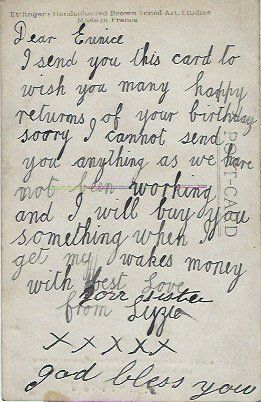 E V Roger's Handcoloured Brown Toned Art. Studies
Made in France
Dear Eunice
I send you this card to
wish you many happy
returns of your birthday
soory I cannot send
you anything as we have
not been working
and I will buy you
something when I
get my wakes money
with best Love
from your sister
Lizzie
X X X X X
god bless you
POST-CARD